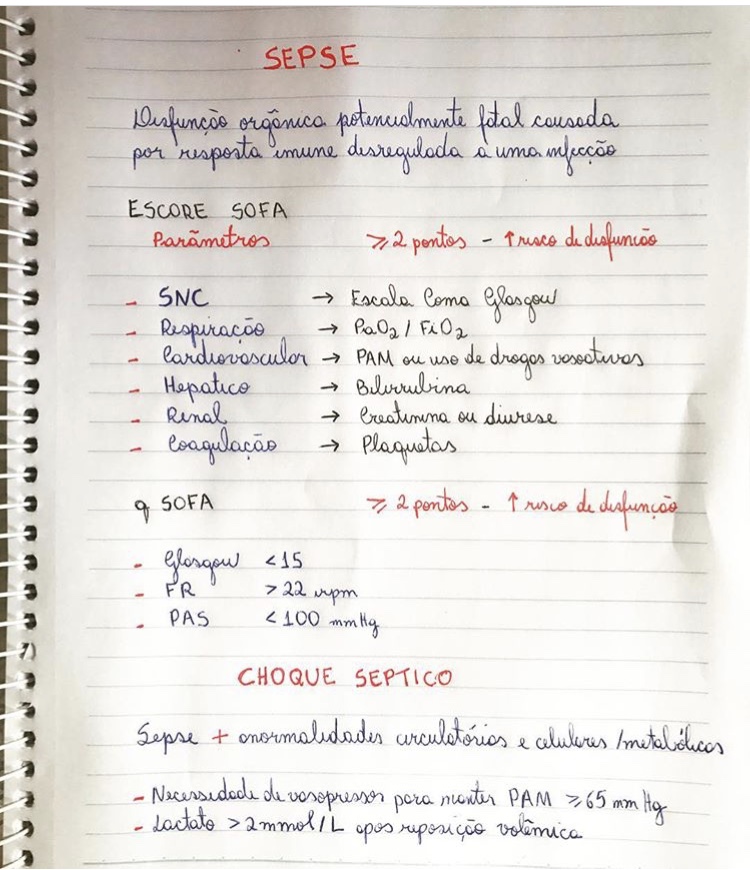 SEPSE
Disfunção orgânica potencialmente fatal causada
por resposta imune desregulada a uma infecção
ESCORE SOFA
Parâmetros ≥ 2 pontos - ↑ risco de disfunção
- SNC → Escala Coma Glasgow
- Respiração → PaO2 / FiO2
- Cardiovascular → PAM ou uso de drogas vasoativas
- Hepatico → Bilirrubina
- Renal → Creatinina ou diurese
- Coagulação → Plaquetas
q SOFA ≥ 2 pontos - ↑ risco de disfunção
- Glasgow < 15
- FR > 22 irpm
- PAS < 100 mmHg
CHOQUE SEPTICO
Sepse + anormalidades circulatórias e celulares /metabólicas
- Necessidade de vasopressor para manter PAM ≥ 65 mm Hg
- Lactato > 2 mmol/L apos reposição volêmica